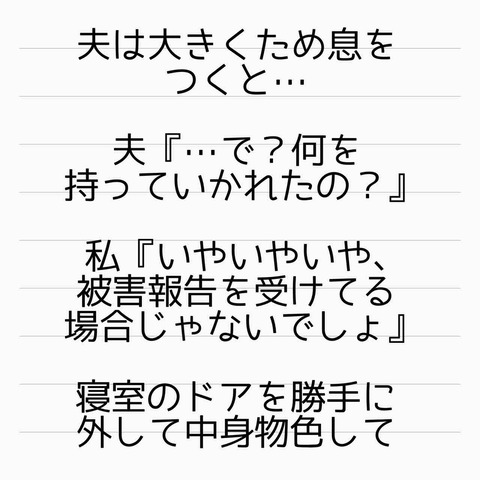 夫は大きくため息を
つくと…
夫『…で？何を
持っていかれたの？』
私『いやいやいや、
被害報告を受けてる
場合じゃないでしょ』
寝室のドアを勝手に
外して中身物色して